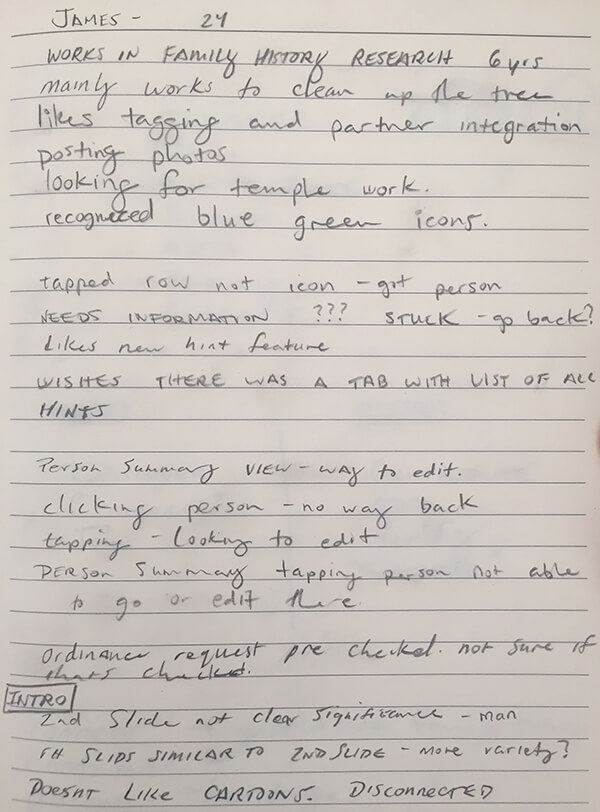 JAMES - 24
WORKS IN FAMILY HISTORY RESEARCH 6 yrs
mainly works to clean up the tree
likes tagging and partner integration
posting photos
looking for temple work.
recognized blue green icons.
tapped row not icon - got person
NEEDS INFORMATION ??? STUCK - go back?
Likes new hint feature
WISHES THERE WAS A TAB WITH LIST OF ALL
HINTS
Person Summary VIEW - WAY to edit.
clicking person - no way back
tapping - Looking to edit
PERSON Summary tapping person not able
to go or edit there.
Ordinance request pre checked. not sure if
thats checked.
INTRO
2nd Slide not clear significance - man
SLIDS SIMILAR TO 2ND SLIDE - More variety?
DOESNT LIKE CARTOONS. DISCONNECTED